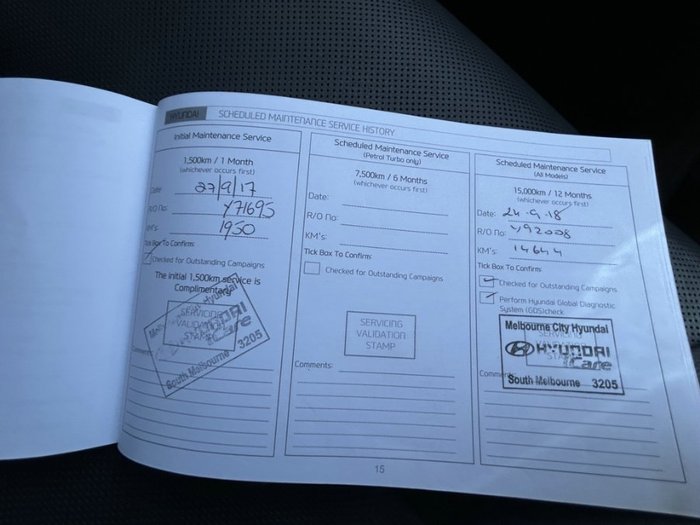 HYUNDAI SCHEDULED MAINTENANCE SERVICE HISTORY
Initial Maintenance Service
1,500km / 1 Month
(whichever occurs first)
Date 27/9/17
R/O No: Y71695
KM's: 1950
Tick Box To Confirm:
Checked for Outstanding Campaigns
The initial 1,500km service is
Complimentary
SERVICING
VALIDATION
STAMP
HYUNDAI
iCare
South Melbourne 3205
Comments:
Scheduled Maintenance Service
(Petrol Turbo only)
7,500km / 6 Months
(whichever occurs first)
Date:
R/O No:
KM's:
Tick Box To Confirm:
Checked for Outstanding Campaigns
SERVICING
VALIDATION
STAMP
Comments:
Scheduled Maintenance Service
(All Models)
15,000km / 12 Months
(whichever occurs first)
Date: 24.9.18
R/O No: Y92008
KM's: 14644
Tick Box To Confirm:
Checked for Outstanding Campaigns
Perform Hyundai Global Diagnostic
System (GDS)check
Melbourne City Hyundai
SERVICING
HYUNDAI
iCare
South Melbourne 3205
15